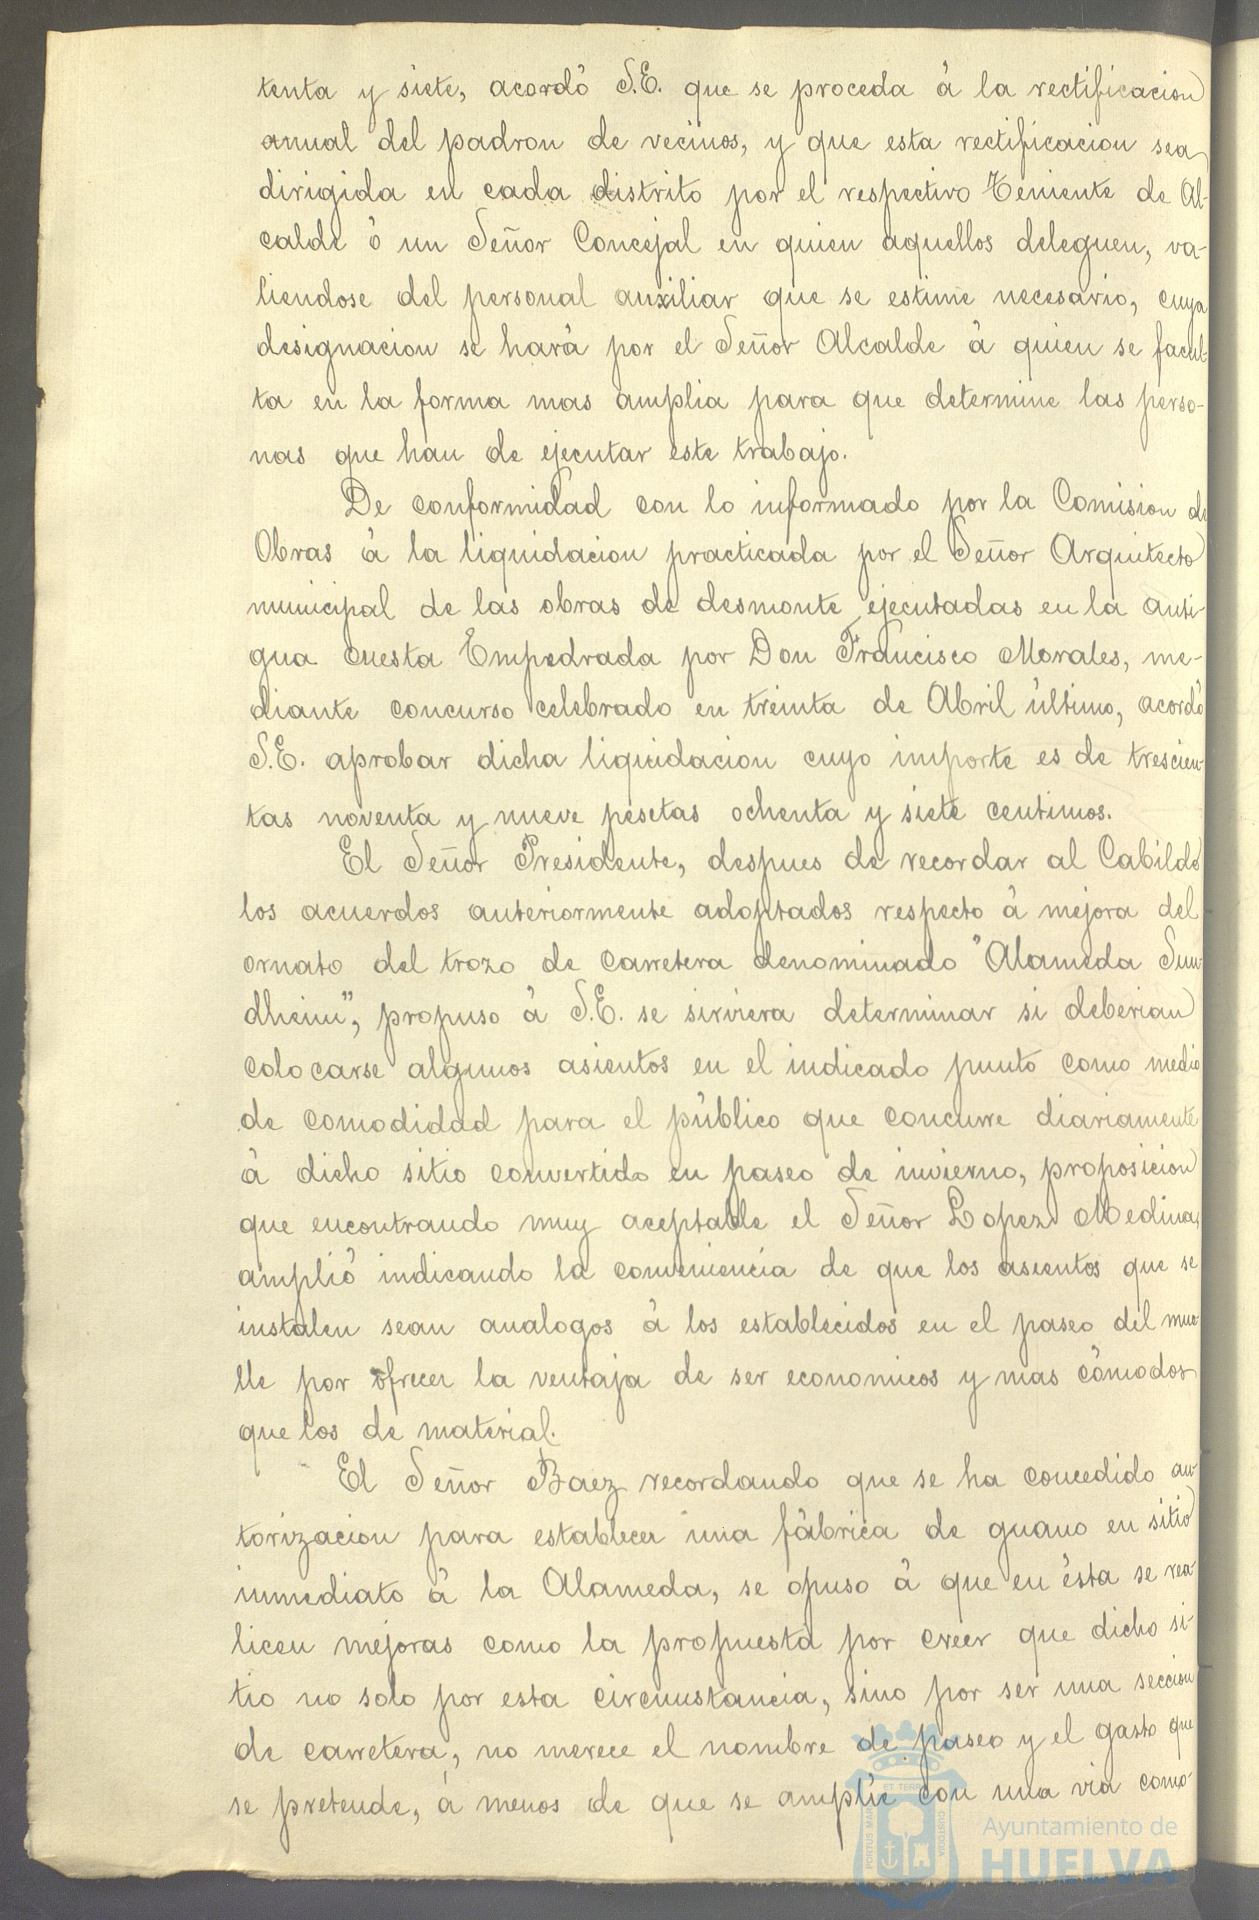 tenta y siete, acordó S.E. que se proceda á la rectificacion
anual del padron de vecinos, y que esta rectificacion sea
dirigida en cada distrito por el respectivo Teniente de Al-
calde ó un Señor Concejal en quien aquellos deleguen, va-
liendose del personal auxiliar que se estime necesario, cuya
designacion se hará por el Señor Alcalde á quien se facul-
ta en la forma mas amplia para que determine las perso-
nas que han de ejecutar este trabajo.
De conformidad con lo informado por la Comision de
Obras á la liquidacion practicada por el Señor Arquitecto
municipal de las obras de desmonte ejecutadas en la anti-
gua cuesta Empedrada por Don Francisco Morales, me-
diante concurso celebrado en treinta de Abril último, acordó
S.E. aprobar dicha liquidacion cuyo importe es de trescien-
tas noventa y nueve pesetas ochenta y siete centimos.
El Señor Presidente, despues de recordar al Cabildo
los acuerdos anteriormente adoptados respecto á mejora del
ornato del trozo de carretera denominado "Alameda Sun-
dheim", propuso á S.E. se sirviera determinar si deberian
colocarse algunos asientos en el indicado punto como medio
de comodidad para el público que concurre diariamente
á dicho sitio convertido en paseo de invierno, proposicion
que encontrando muy aceptable el Señor Lopez Medina,
amplió indicando la conveniencia de que los asientos que se
instalen sean analogos á los establecidos en el paseo del mue-
lle por ofrecer la ventaja de ser economicos y mas cómodos
que los de material.
El Señor Baez recordando que se ha concedido au-
torizacion para establecer una fábrica de guano en sitio
inmediato á la Alameda, se opuso á que en ésta se rea-
licen mejoras como la propuesta por creer que dicho si-
tio no solo por esta circunstancia, sino por ser una seccion
de carretera, no merece el nombre de paseo y el gasto que
se pretende, á menos de que se amplíe con una via como-
PORTUS MARIS ET TERRAE CUSTODIA
Ayuntamiento de
HUELVA